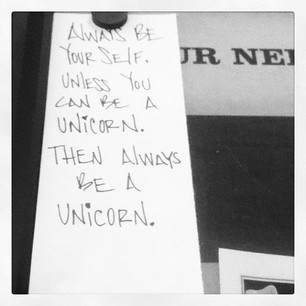 ALWAYS BE
YOUR SELF.
UNLESS YOU
CAN BE A
UNICORN.
THEN ALWAYS
BE A
UNICORN.
UR NE